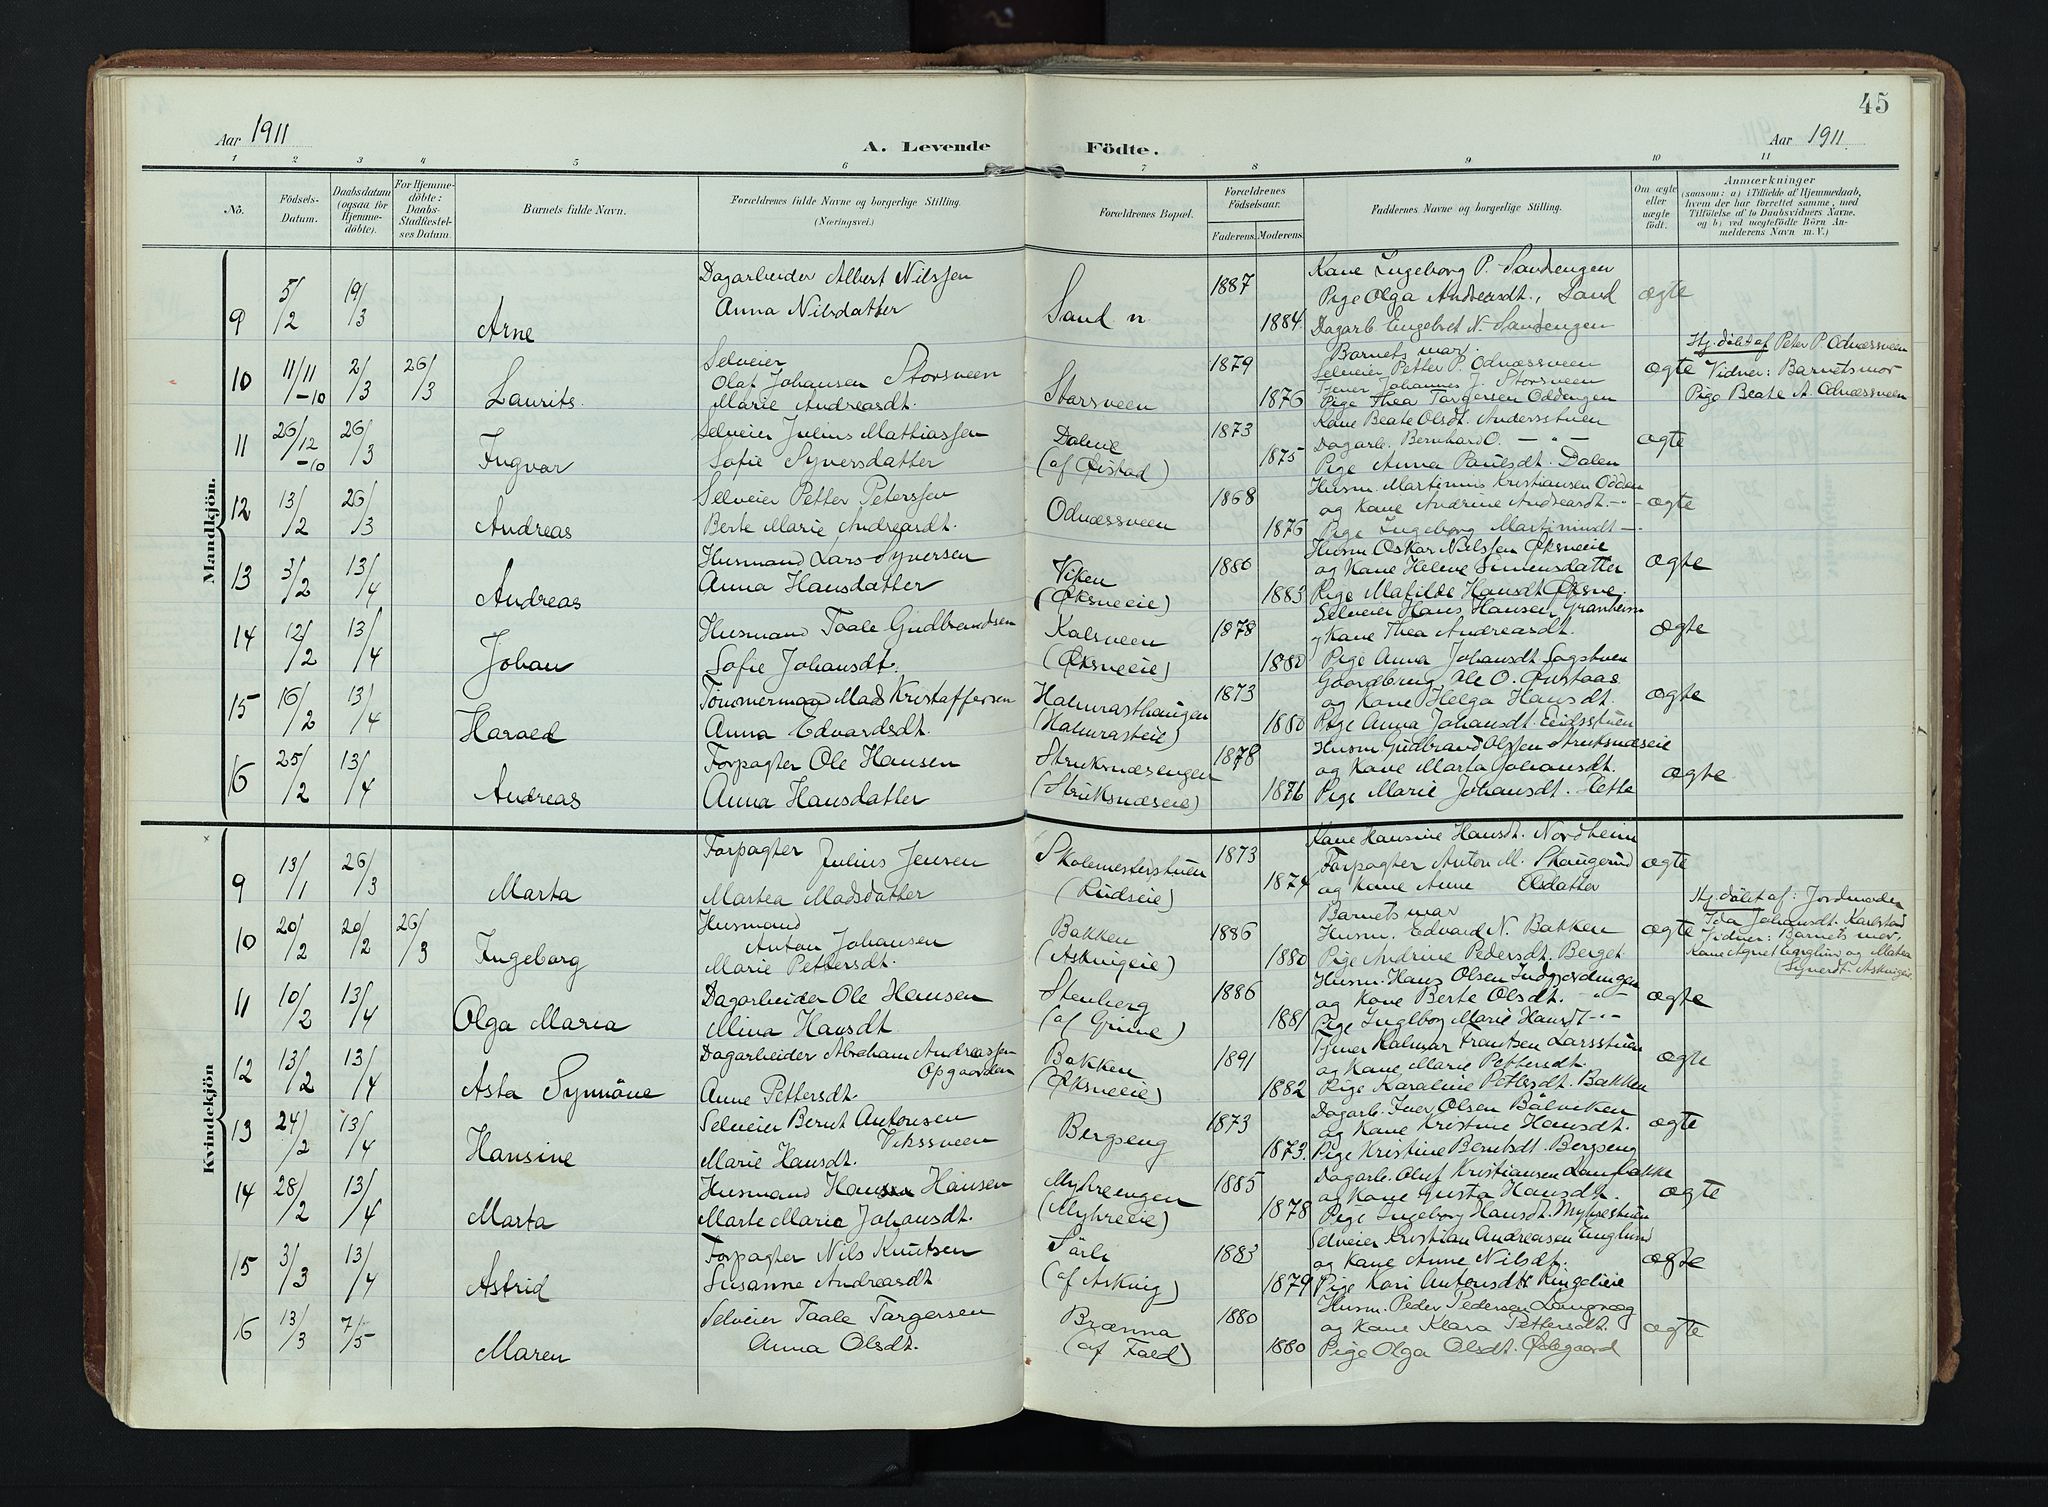 45
Aar 1911
A. Levende Födte.
Aar 1911
1 2 3 4 5 6 7 8 9 10 11
No.
Födsels-Datum.
Daabsdatum (ogsaa for Hjemme-döbte).
For Hjemme-döbte: Daabs-Stadfæstel-ses Datum.
Barnets fulde Navn.
Forældrenes fulde Navne og borgerlige Stilling. (Næringsvei.)
Forældrenes Bopæl.
Forældrenes Födselsaar.
Faderens. Moderens.
Faddernes Navne og borgerlige Stilling.
Om ægte eller uægte födt.
Anmærkninger
(saasom: a) i Tilfælde af Hjemmedaab, hvem der har forrettet samme, med Tilföielse af to Daabsvidners Navne, og b) ved uægtefödte Börn An-melderens Navn m. V.)
Mandkjön.
9 5/2 19/3 Arne
Dagarbeider Albert Nilssen
Anna Nilsdatter
Sand n. 1887 1884
Kone Ingeborg P. Sandengen
Pige Olga Andersdt., Sand
Dagarb. Engebret N. Sandengen
ægte
10 11/11 -10 2/3 26/3 Laurits
Selveier
Olaf Johansen Storsveen
Marie Andreasdt.
Storsveen 1879 1876
Barnets mor
Selveier Petter P. Odnæssveen
Tjener Johannes J. Storsveen
Pige Thea Torgersen Oddengen
ægte
Hj. döbt af Peter P. Odnæssveen
Vidner: Barnets mor
Pige Beate A. Odnæssveen
11 26/12 -10 26/3 Ingvar
Selveier Julius Mathiassen
Sofie Syversdatter
Dalene
(af Øistad)
1873 1875
Kone Beate Olsdt. Andersstuen
Dagarb. Bernhard O. - " -
Pige Anna Paulsdt. Dalen
ægte
12 13/2 26/3 Andreas
Selveier Petter Peterssen
Berte Marie Andreasdt.
Odnæssveen 1868 1876
Husm. Martinus Kristiansen Odden
og Kone Andrine Andreasdt. - " -
Pige Ingeborg Martinusdt - " -
ægte
13 3/2 13/4 Andreas
Husmand Lars Syversen
Anna Hansdatter
Viken
(Øksneeie)
1880 1883
Husm Oskar Nilssen Øksneeie
og Kone Helene Simensdatter
Pige Matilde Hansdt. Øksne.
ægte
14 12/2 13/4 Johan
Husmand Taale Gudbrandsen
Sofie Johansdt.
Kalsveen
(Øksneeie)
1878 1880
Selveier Hans Hansen Granheim
og Kone Thea Andreasdt.
Pige Anna Johansdt. Sagstuen
ægte
15 16/2 13/4 Harald
Tömmermand Mads Kristoffersen
Anna Edvardsdt.
Halmrasthaugen
(Halmrasteie)
1873 1880
Gaardbrug. Ole O.
og Kone Helga Hansdt.
Pige Anna Johansdt. Eidsstuen
ægte
16 25/2 13/4 Andreas
Forpagter Ole Hansen
Anna Hansdatter
Struksnæsengen
(Struksnæseie)
1878 1876
Husm Gudbrand Olssen Struksnæseie
og Kone Marta Johansdt.
Pige Marie Johansdt.
ægte
Kvindekjön
9 13/1 26/3 Marta
Forpagter Julius Jensen
Martea Madsdatter
Skolemesterstuen
(Rudseie)
1873 1874
Kone Hansine Hansdt. Nordheim
Forpagter Anton M. Skaugerud
og Kone Anne Olsdatter
ægte
10 20/2 20/2 26/3 Ingeborg
Husmand
Anton Johansen
Marie Pettersdt.
Bakken
(Askvigeie)
1886 1880
Barnets mor
Husm. Edvard N. Bakken
Pige Andrine Pedersdt. Berget
ægte
Hj. döbt af: Jordmoder
Ida Johansdt. Karlstad
Vidner: Barnets mor,
Kone Agnet Berglund og Matea
Syverdt. Askvigeie
11 10/2 13/4 Olga Maria
Dagarbeider Ole Hansen
Mina Hansdt.
Stenberg
(af Grime)
1886 1881
Husm. Hans Olsen Indgjordengen
og Kone Berte Olsdt. - " -
Pige Ingeborg Marie Hansdt - " -
ægte
12 13/2 13/4 Asta Synnöve
Dagarbeider Abraham Andreassen
Opgaarden
Anne Pettersdt.
Bakken
(Øksneeie)
1891 1882
Tjener Halmar Frantsen Larsstuen
og Kone Marie Pettersdt.
Pige Karoline Pettersdt. Bakken
ægte
13 24/2 13/4 Hansine
Selveier Bernt Antonsen
Vikssveen
Marie Hansdt.
Bergseng
1873 1873.
Dagarb. Iver Olsen Bölviken
og Kone Kristine Hansdt.
Pige Kristine Berntsdt. Bergseng
ægte
14 28/2 13/4 Marta
Husmand Hans Hansen
Marte Marie Johansdt.
Myhreengen
(Myhreeie)
1885 1878
Dagarb. Oluf Kristiansen Lanbakke
og Kone Gusta Hansdt.
Pige Ingeborg Hansdt. Myhrestuen
ægte
15 3/3 13/4 Astrid
Forpagter Nils Knutsen
Susanne Andreasdt.
Sörli
(af Askvig)
1883 1879
Selveier Kristian Andreasen Englund
og Kone Anne Nilsdt.
Pige Kari Antonsdt Ringelieie
ægte
16 13/3 7/5 Maren
Selveier Taale Torgersen
Anna Olsdt.
Brænna
(af Fald)
1880 1880
Husm. Peder Pedersen Langvæg
og Kone Klara Pettersdt.
Pige Olga Olsdt. Östegaard
ægte